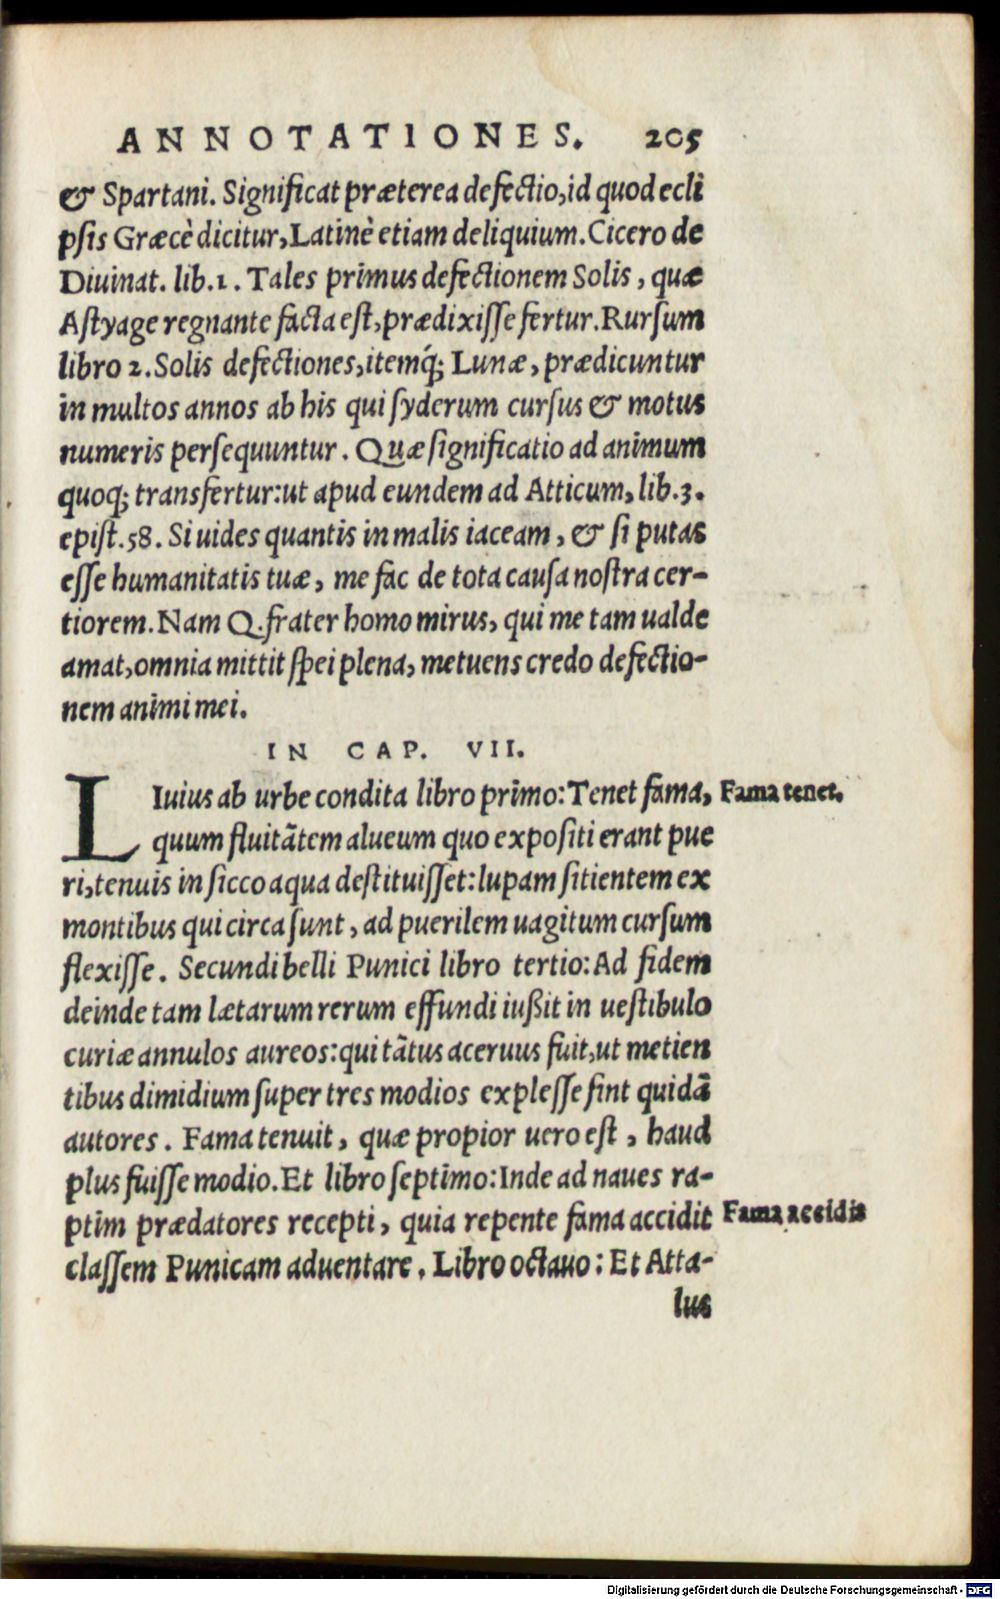 ANNOTATIONES. 205
& Spartani. Significat præterea defectio, id quod ecli
psis Græcè dicitur, Latinè etiam deliquium. Cicero de
Diuinat. lib.1. Tales primus defectionem Solis, quæ
Astyage regnante facta est, prædixisse fertur. Rursum
libro 2. Solis defectiones, itemq́; Lunæ, prædicuntur
in multos annos ab his qui syderum cursus & motus
numeris persequuntur. Quæ significatio ad animum
quoq; transfertur: ut apud eundem ad Atticum, lib.3.
epist.58. Si uides quantis in malis iaceam, & si putas
esse humanitatis tuæ, me fac de tota causa nostra cer-
tiorem. Nam Q. frater homo mirus, qui me tam ualde
amat, omnia mittit spei plena, metuens credo defectio-
nem animi mei.
IN CAP. VII.
LIuius ab urbe condita libro primo: Tenet fama, Fama tenet.
quum fluitãtem alueum quo expositi erant pue
ri, tenuis in sicco aqua destituisset: lupam sitientem ex
montibus qui circa sunt, ad puerilem uagitum cursum
flexisse. Secundi belli Punici libro tertio: Ad fidem
deinde tam lætarum rerum effundi iußit in uestibulo
curiæ annulos aureos: qui tãtus aceruus fuit, ut metien
tibus dimidium super tres modios explesse sint quidã
autores. Fama tenuit, quæ propior uero est, haud
plus fuisse modio. Et libro septimo: Inde ad naues ra-
ptim prædatores recepti, quia repente fama accidit Fama accidit
classem Punicam aduentare. Libro octauo: Et Atta-
lus
Digitalisierung gefördert durch die Deutsche Forschungsgemeinschaft - DFG